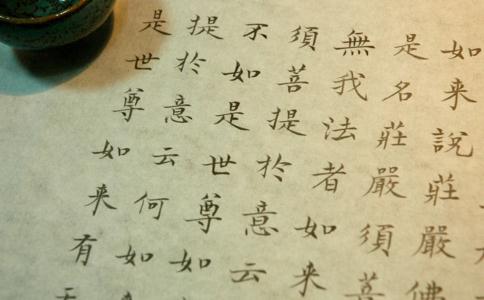 如来說莊嚴佛
是名莊嚴須菩
無我法者如来
須菩提於意云
不如是世尊如
提於意云何如来
是世尊如来有